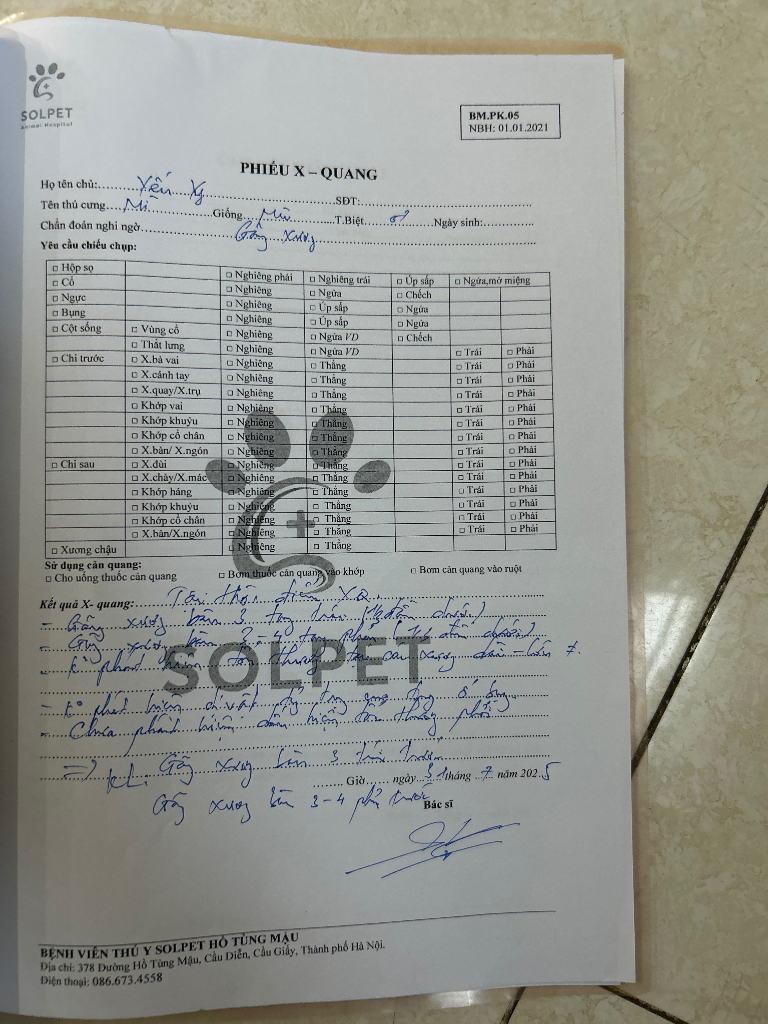 SOLPET
Animal Hospital
BM.PK.05
NBH: 01.01.2021
PHIẾU X – QUANG
Họ tên chủ: Yến SĐT:
Tên thú cưng Mi Giống Mèo T.Biệt ♂ Ngày sinh:
Chẩn đoán nghi ngờ Gãy xương
Yêu cầu chiếu chụp:
□ Hộp sọ □ Nghiêng phải □ Nghiêng trái □ Úp sấp □ Ngửa,mở miệng
□ Cổ □ Nghiêng □ Ngửa □ Chếch
□ Ngực □ Nghiêng □ Úp sấp □ Ngửa
□ Bụng □ Nghiêng □ Úp sấp □ Ngửa
□ Cột sống □ Vùng cổ □ Nghiêng □ Ngửa VD □ Chếch
□ Thắt lưng □ Nghiêng □ Ngửa VD □ Trái □ Phải
□ Chi trước □ X.bả vai □ Nghiêng □ Thẳng □ Trái □ Phải
□ X.cánh tay □ Nghiêng □ Thẳng □ Trái □ Phải
□ X.quay/X.trụ □ Nghiêng □ Thẳng □ Trái □ Phải
□ Khớp vai □ Nghiêng □ Thẳng □ Trái □ Phải
□ Khớp khuỷu □ Nghiêng □ Thẳng □ Trái □ Phải
□ Khớp cổ chân □ Nghiêng □ Thẳng □ Trái □ Phải
□ X.bàn/ X.ngón □ Nghiêng □ Thẳng □ Trái □ Phải
□ Chi sau □ X.đùi □ Nghiêng □ Thẳng □ Trái □ Phải
□ X.chày/X.mác □ Nghiêng □ Thẳng □ Trái □ Phải
□ Khớp háng □ Nghiêng □ Thẳng □ Trái □ Phải
□ Khớp khuỷu □ Nghiêng □ Thẳng □ Trái □ Phải
□ Khớp cổ chân □ Nghiêng □ Thẳng □ Trái □ Phải
□ X.bàn/X.ngón □ Nghiêng □ Thẳng □ Trái □ Phải
□ Xương chậu □ Nghiêng □ Thẳng
Sử dụng cản quang:
□ Cho uống thuốc cản quang □ Bơm thuốc cản quang vào khớp □ Bơm cản quang vào ruột
Kết quả X- quang: Tại thời điểm XQ
- Gãy xương bàn 3 tay trái
- Gãy xương bàn 3-4 tay phải
- K phát hiện tổn thương
SOLPET
- K phát hiện dị vật
- Chưa phát hiện dấu hiệu tổn thương phổi
=> KL: Gãy xương bàn 3 trái trước
Giờ ngày 31 tháng 7 năm 2025
Gãy xương bàn 3-4 phải trước
Bác sĩ
BỆNH VIỆN THÚ Y SOLPET HỒ TÙNG MẬU
Địa chỉ: 378 Đường Hồ Tùng Mậu, Cầu Diễn, Cầu Giấy, Thành phố Hà Nội.
Điện thoại: 086.673.4558